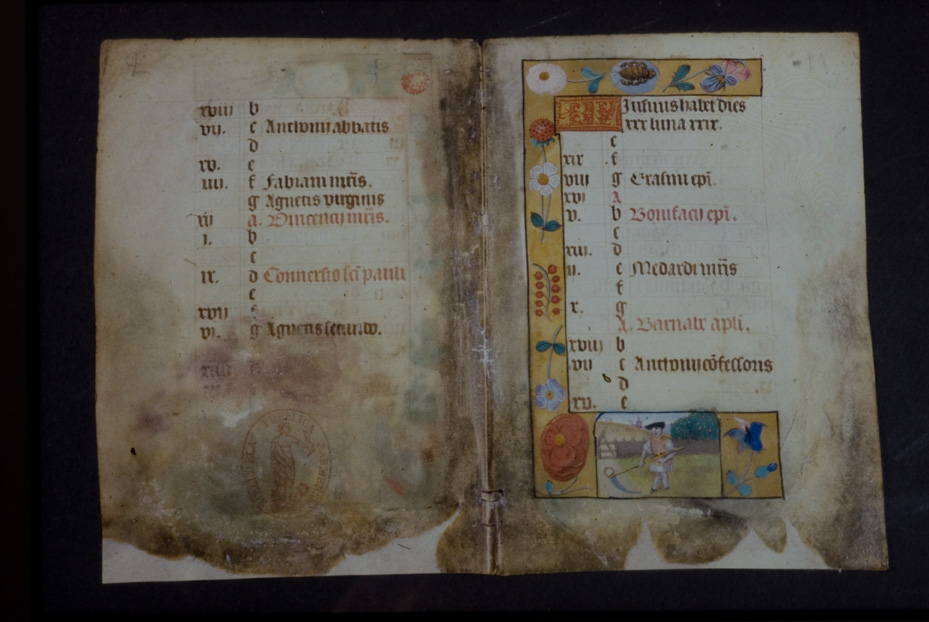 xviii b
vii. c Anthonii abbatis
d
xv. e
iiii. f Fabiani mr̄is.
g Agnetis virginis
xii a. Vincencii mr̄is.
i. b
c
ix. d Conversio sc̄i pauli
e
xvii f
vi. g Agnetis secundo.
KL Iunius habet dies
xxx luna xxix.
e
xix f
viii g Erasmi ep̄i.
xvi A
v. b Bonifacii ep̄i.
c
xiii. d
ii. e Medardi mr̄is
f
x. g
A. Barnabe apl̄i.
xviii b
vii c Anthonii cōfessoris
d
xv. e